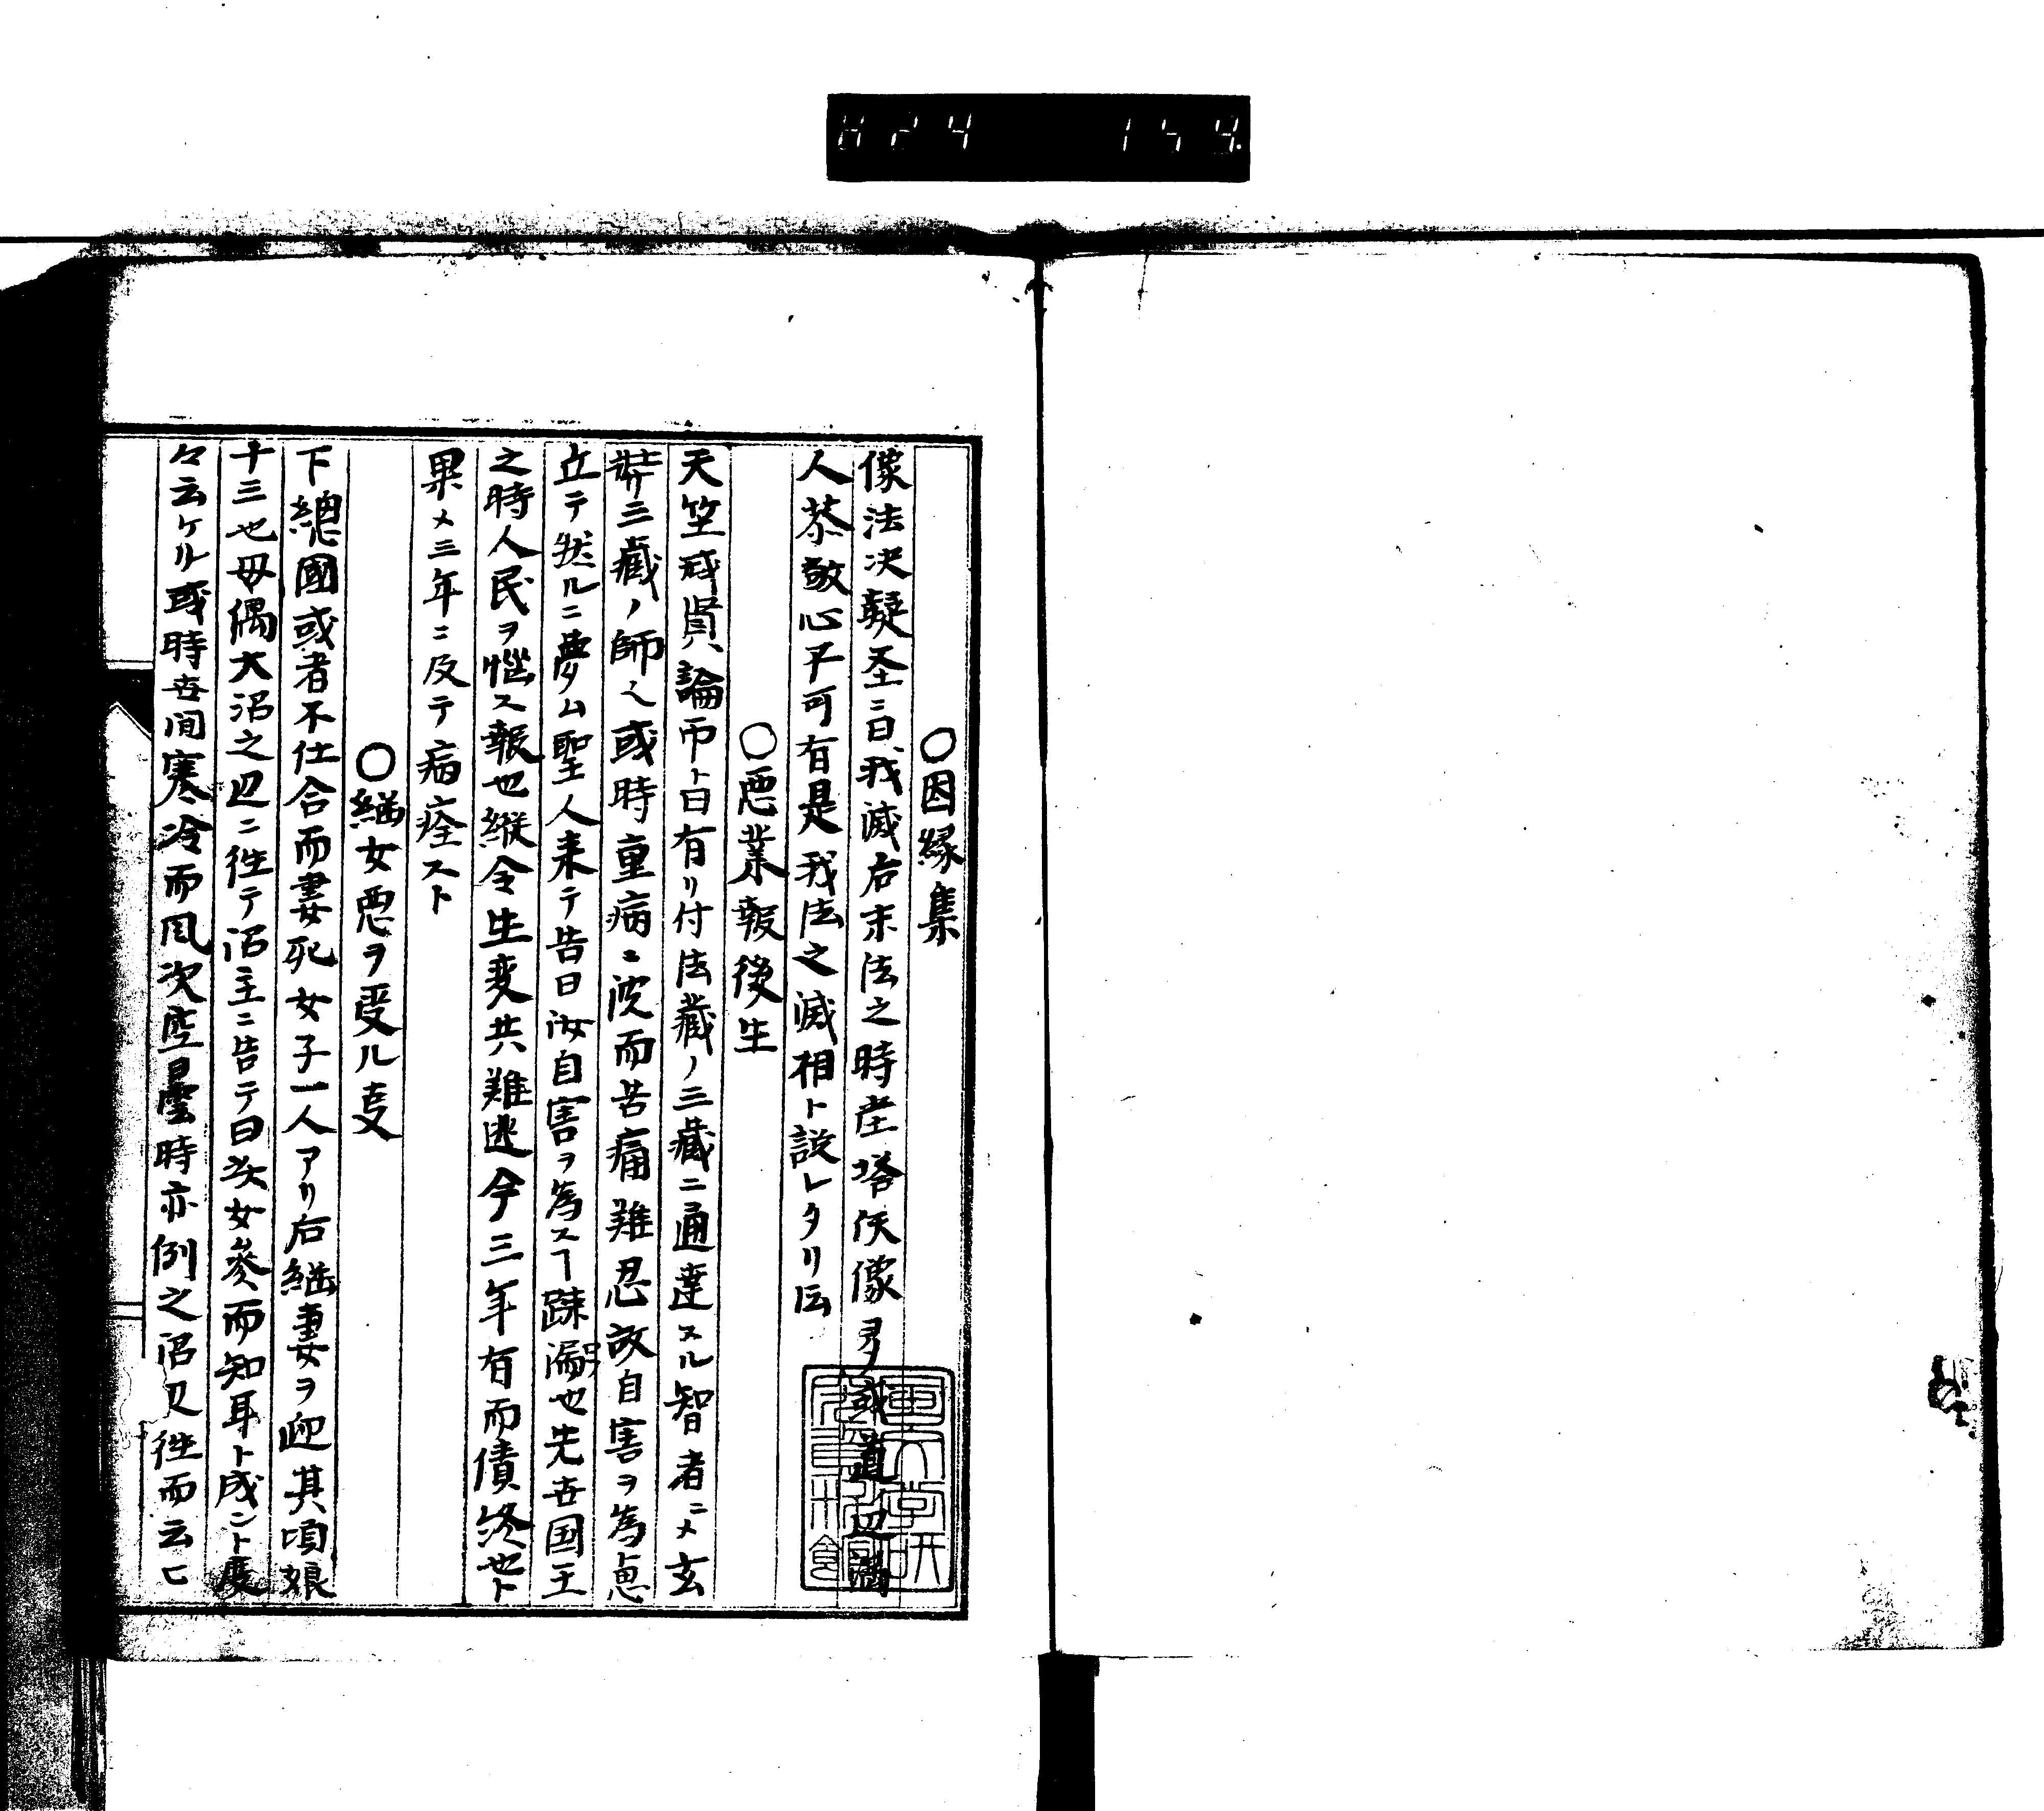 824 154
○因縁集
像法决疑圣ニ曰我滅后末法之時堂塔仸像 道辺満
人恭敬心平可有是我法之滅相ト説レタリ云
○悪業報後生
天竺戒賢論师ト曰有リ付法藏ノ三藏ニ通達スル智者ニメ玄
弉三藏ノ師也或時重病ニ沈而苦痛難忍故自害ヲ為
立テ然ルニ夢ム聖人来テ告曰汝自害ヲ為スヿ踈漏也先世国王
之時人民ヲ惱ス報也縦令生変共難逃今三年有而債終也ト
果メ三年ニ及テ病痊スト
○継女悪ヲ受ル叓
下總國或者不仕合而妻死女子一人アリ右継妻ヲ迎其頃娘
十三也母偶大沼之辺ニ徃テ沼主ニ告テ曰 女參而知耳ト成ント度
々云ケル或時世间寒冷而风次空曇時亦例之沼 徃而云